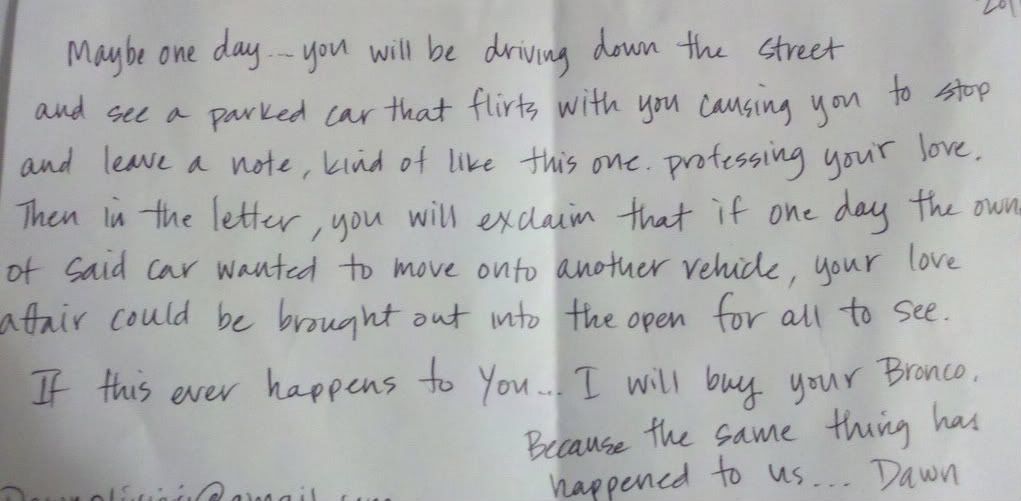 201
Maybe one day... you will be driving down the street
and see a parked car that flirts with you causing you to stop
and leave a note, kind of like this one. professing your love.
Then in the letter, you will exclaim that if one day the own
of said car wanted to move onto another vehicle, your love
affair could be brought out into the open for all to see.
If this ever happens to You... I will buy your Bronco.
Because the same thing has
happened to us... Dawn